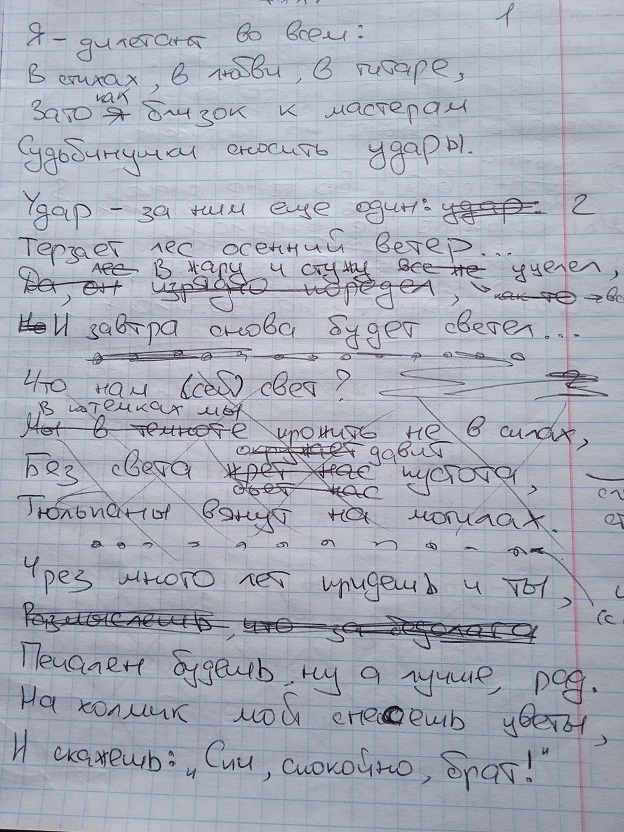 1
Я – дилетант во всем:
В стихах, в любви, в гитаре,
как
Зато я близок к мастерам
Судьбинушки сносить удары.
Удар – за ним еще один: удар. 2
Терзает лес осенний ветер...
лес В жару и стужу все же уцелел,
Да, он изрядно поредел, как-то → вс
Но И завтра снова будет светел...
Что нам (себ) свет?
В потемках мы
Мы в темноте прожить не в силах,
окружает давит
Без света жрет нас пустота,
бьет нас
Тюльпаны вянут на могилах.
Чрез много лет придешь и ты,
Размыслешь, что за
Печален будешь, ну а лучше, рад.
На холмик мой снесешь цветы,
И скажешь: „Спи, спокойно, брат!"